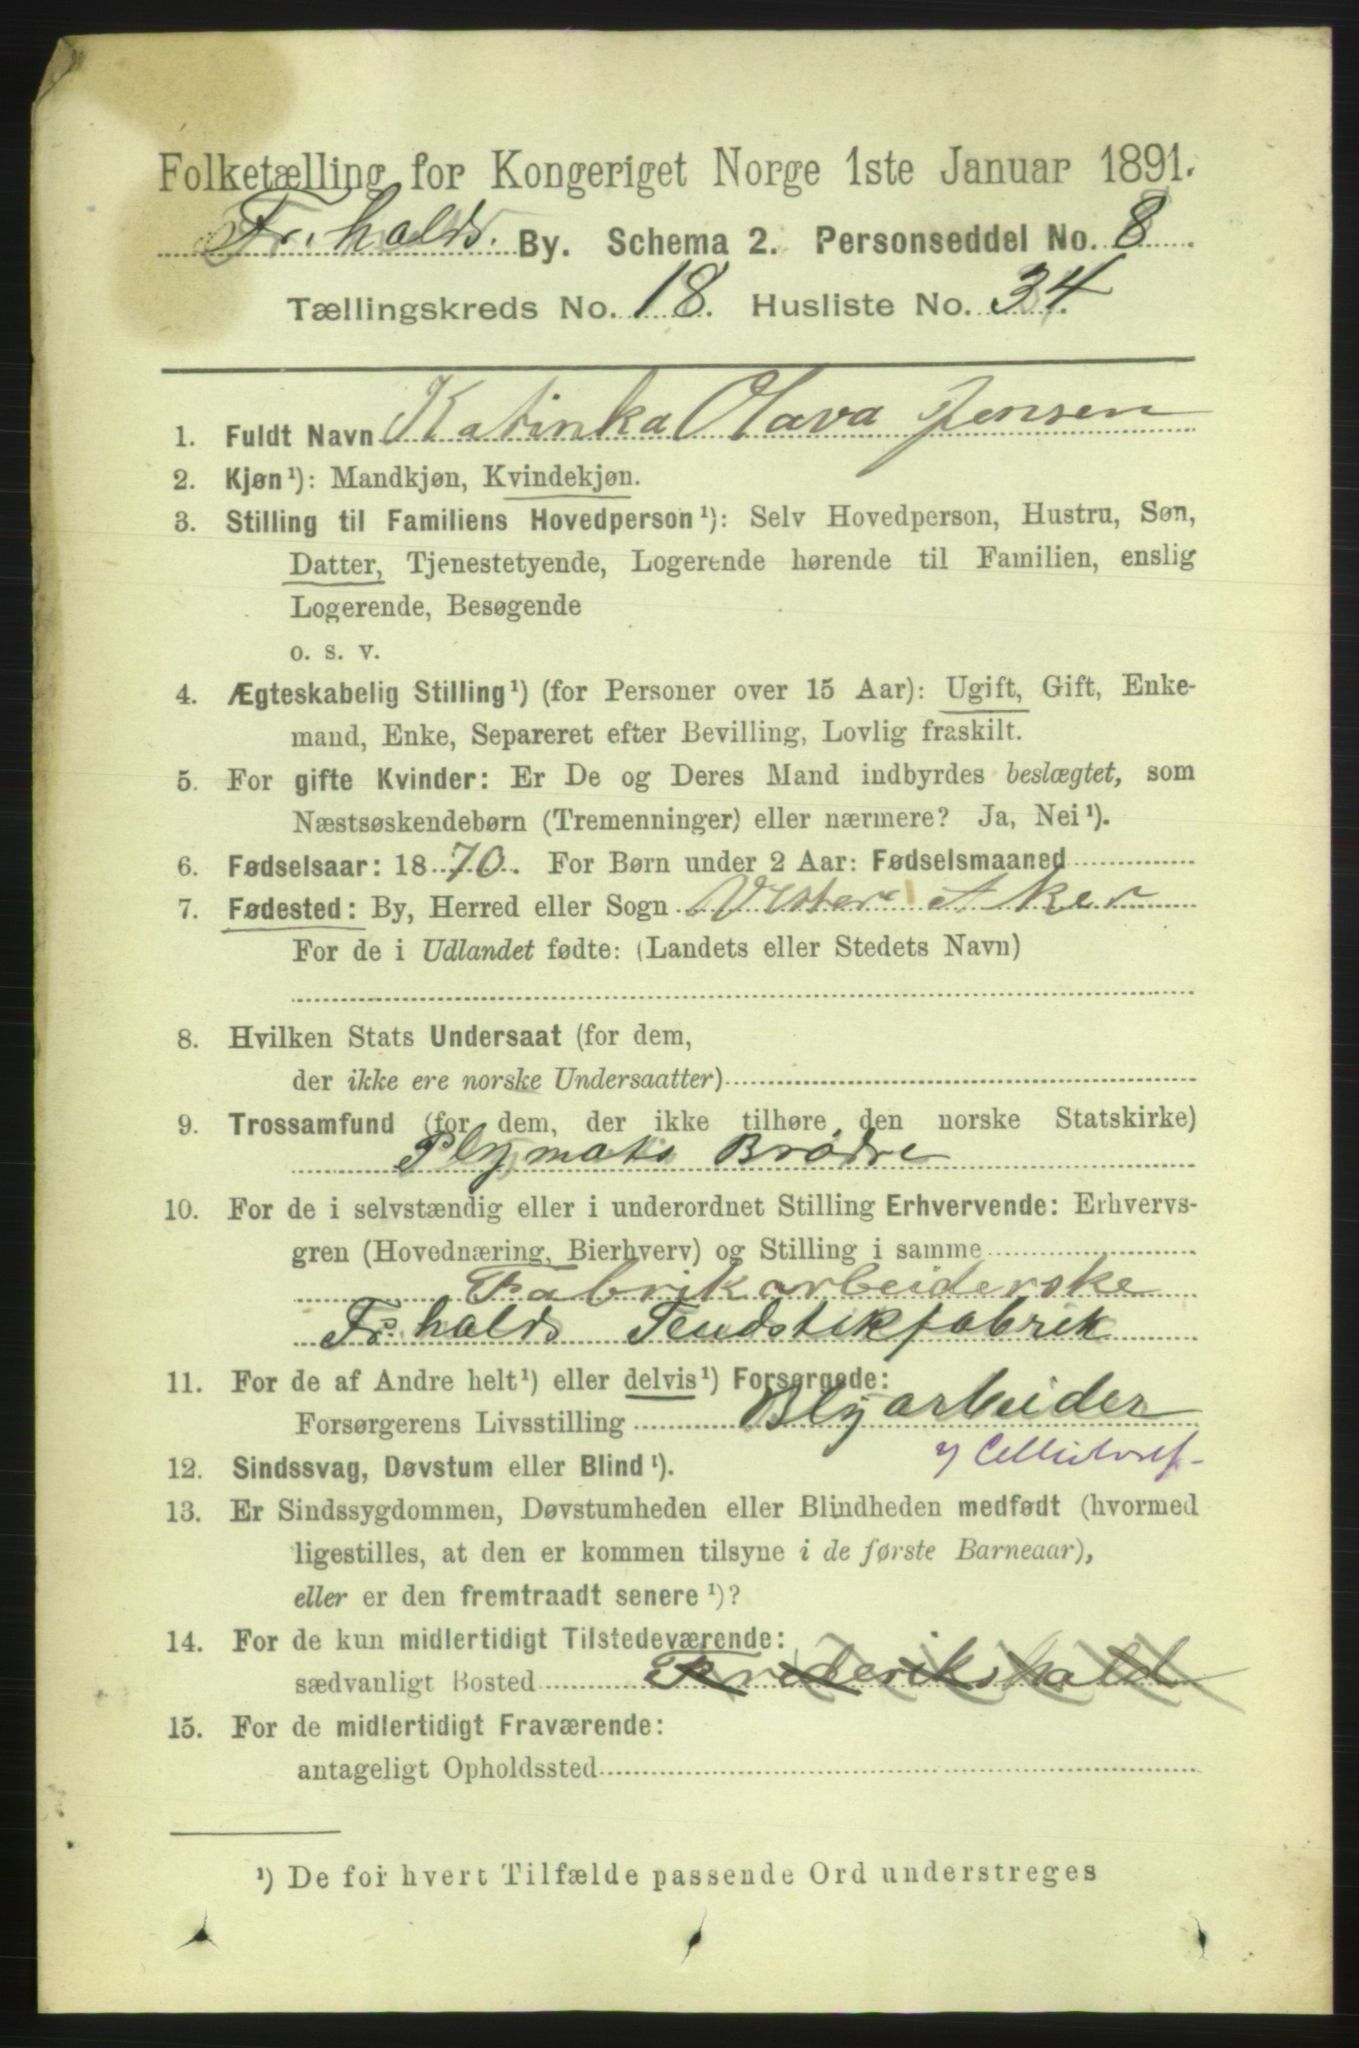 Folketælling for Kongeriget Norge 1ste Januar 1891.
Fr.halds. By. Schema 2. Personseddel No. 8.
Tællingskreds No. 18. Husliste No. 34.
1. Fuldt Navn Katinka Olava Jensen
2. Kjøn¹): Mandkjøn, Kvindekjøn.
3. Stilling til Familiens Hovedperson¹): Selv Hovedperson, Hustru, Søn,
Datter, Tjenestetyende, Logerende hørende til Familien, enslig
Logerende, Besøgende
o. s. v.
4. Ægteskabelig Stilling¹) (for Personer over 15 Aar): Ugift, Gift, Enke-
mand, Enke, Separeret efter Bevilling, Lovlig fraskilt.
5. For gifte Kvinder: Er De og Deres Mand indbyrdes beslægtet, som
Næstsøskendebørn (Tremenninger) eller nærmere? Ja, Nei¹).
6. Fødselsaar: 1870. For Børn under 2 Aar: Fødselsmaaned
7. Fødested: By, Herred eller Sogn Vestre Aker
For de i Udlandet fødte: (Landets eller Stedets Navn)
8. Hvilken Stats Undersaat (for dem,
der ikke ere norske Undersaatter)
9. Trossamfund (for dem, der ikke tilhøre den norske Statskirke)
Plymots Brødre
10. For de i selvstændig eller i underordnet Stilling Erhvervende: Erhvervs-
gren (Hovednæring, Bierhverv) og Stilling i samme
Fabrikarbeiderske
Fr.halds Tendstikfabrik
11. For de af Andre helt¹) eller delvis¹) Forsørgede:
Forsørgerens Livsstilling Blyarbeider
12. Sindssvag, Døvstum eller Blind¹).
13. Er Sindssygdommen, Døvstumheden eller Blindheden medfødt (hvormed
ligestilles, at den er kommen tilsyne i de første Barneaar),
eller er den fremtraadt senere¹)?
14. For de kun midlertidigt Tilstedeværende:
sædvanligt Bosted Frederikshald
15. For de midlertidigt Fraværende:
antageligt Opholdssted
¹) De for hvert Tilfælde passende Ord understreges